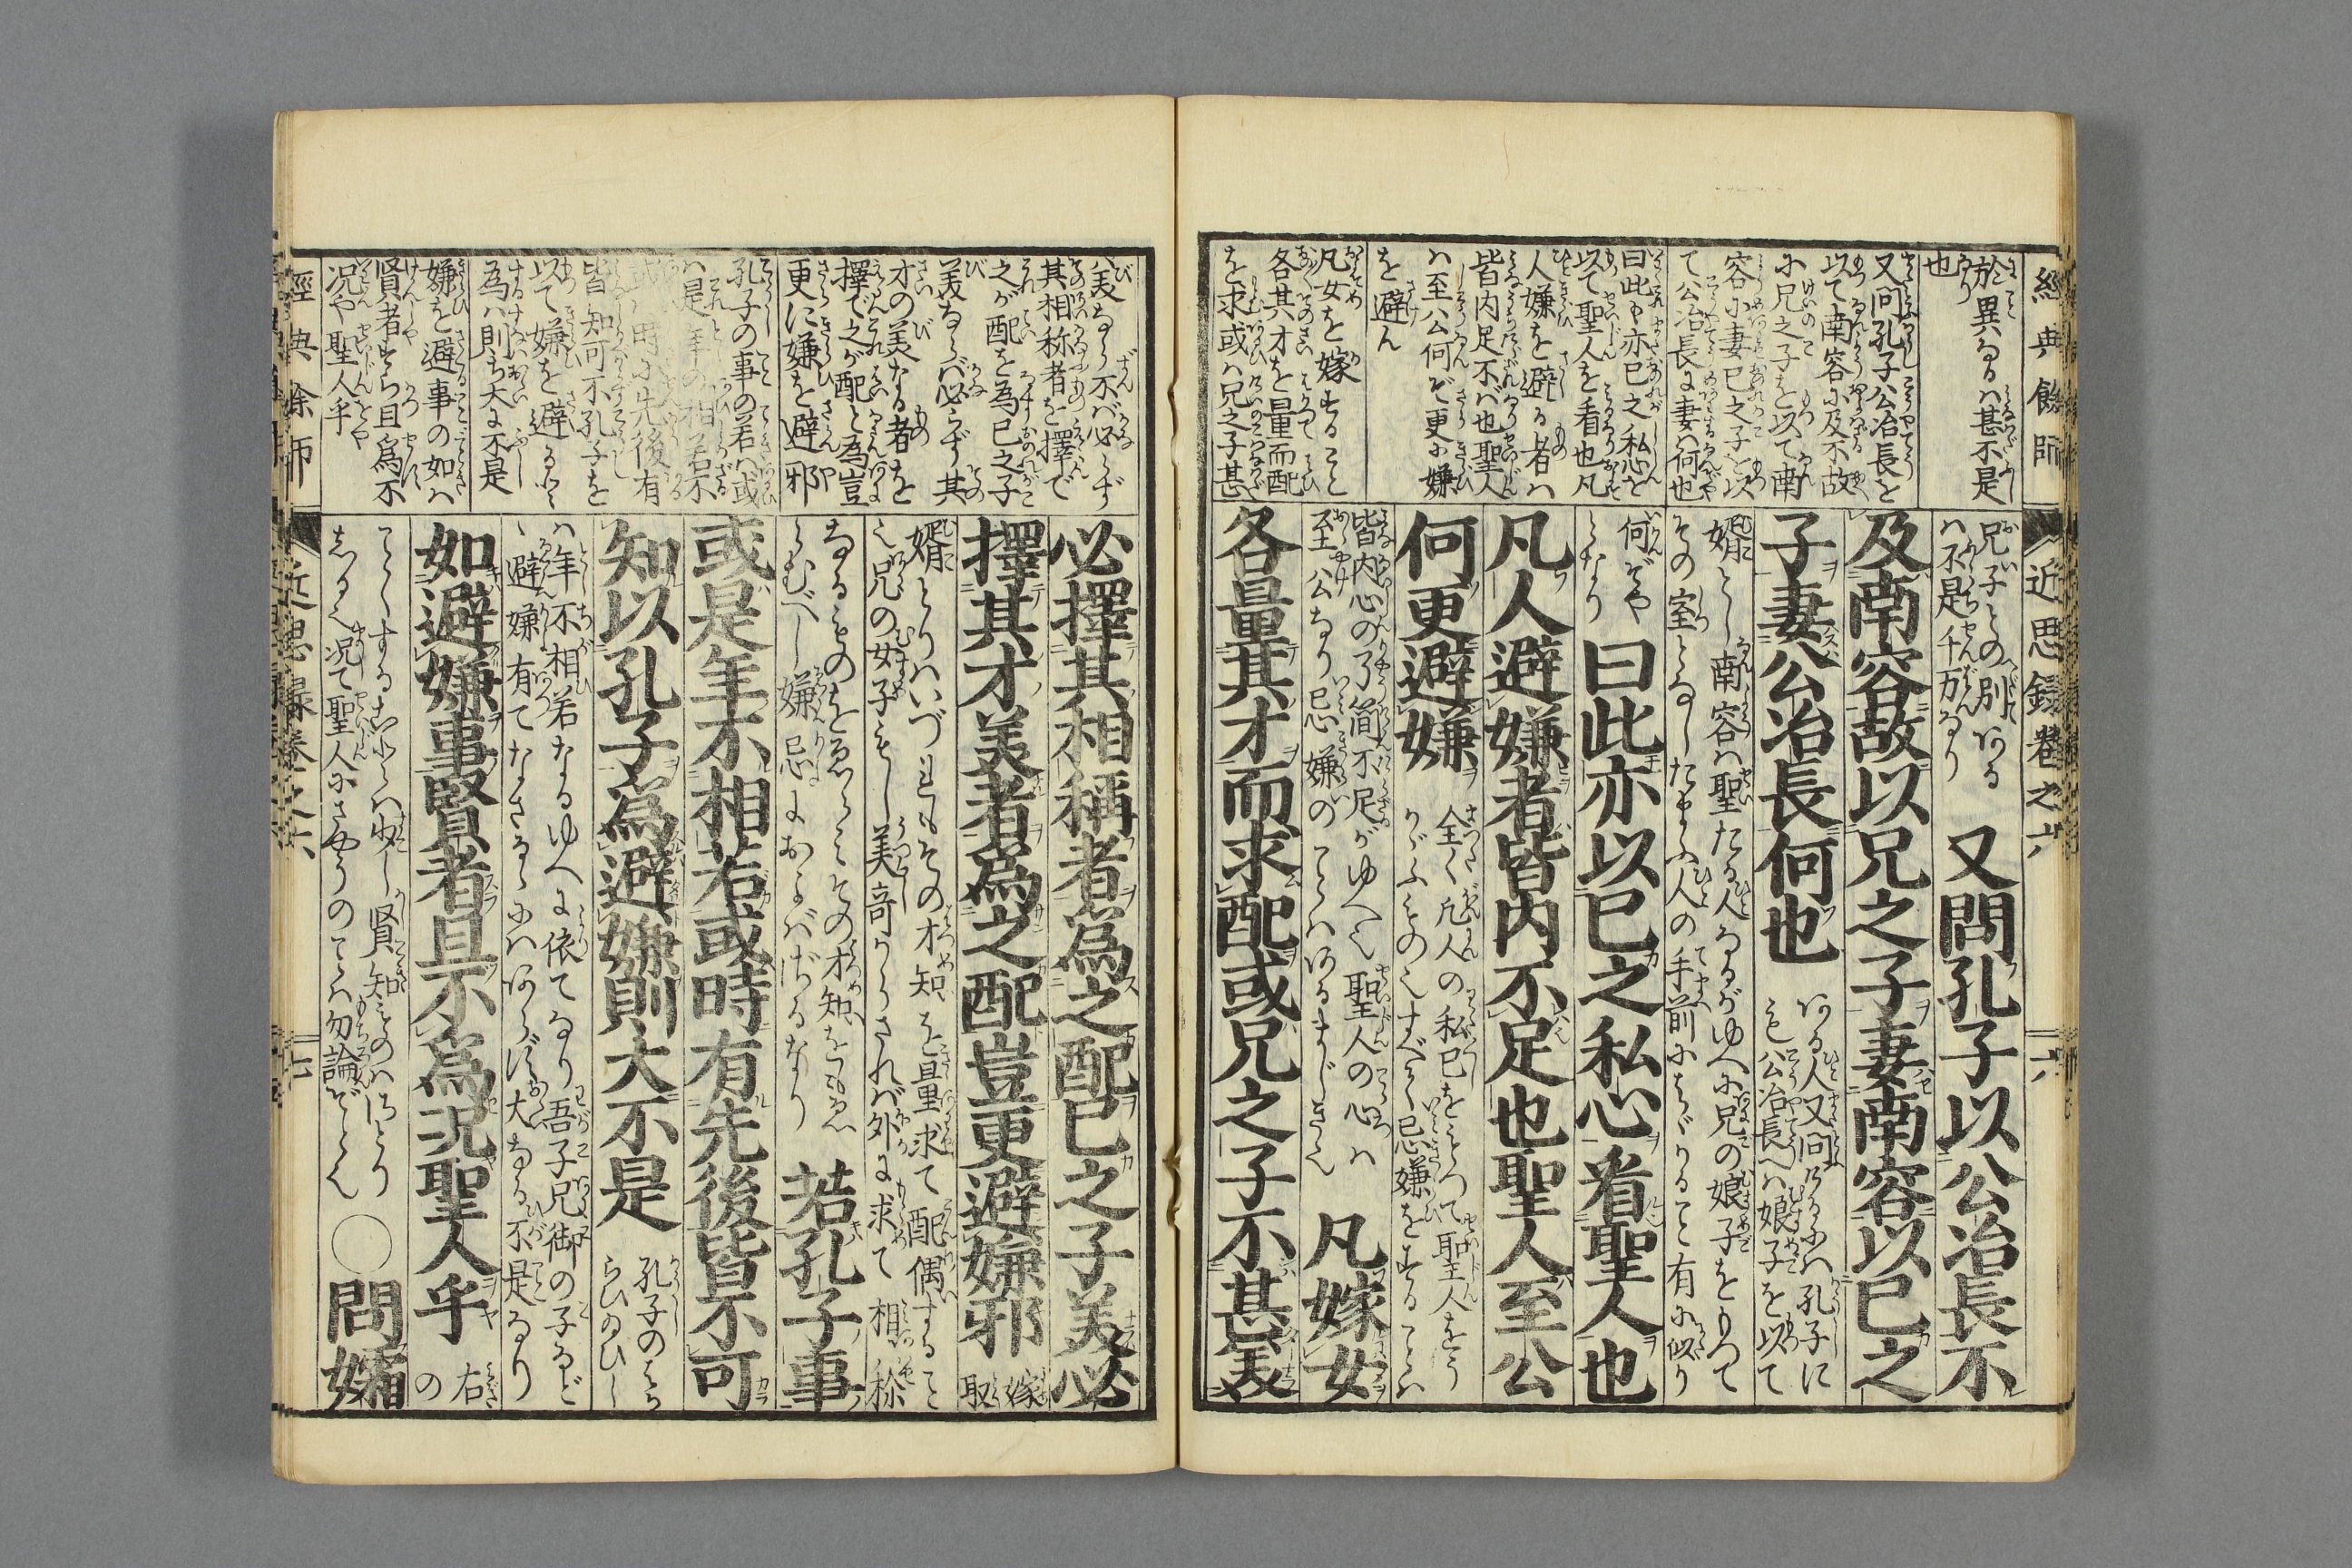 經典餘師
近思録卷之六
六
於異なるハ甚不是
也
又問孔子公冶長を
以て南容に及不故
に兄之子を以て南
容に妻已之子を以
て公冶長に妻ハ何也
曰此も亦已之私心を
以て聖人を看也凡
人嫌を避る者ハ
皆内足不バ也聖人
ハ至公何ぞ更に嫌
を避ん
凡女を嫁すること
各其才を量而配
を求或ハ兄之子甚
兄子との別ある
ハ不是千万なり
又問孔子以公冶長不
及南容故以兄之子妻南容以已之
子妻公冶長何也
ある人又問あるにハ孔子に
も公冶長へハ娘子を以て
婿とし南容ハ聖たる人なるがゆへに兄の娘子をもつて
その室となしたまふ人の手前にはゞかること有に似り
何ぞや
となり
曰此亦以已之私心看聖人也
凡人避嫌者皆内不足也聖人至公
何更避嫌
全く凡人の私已をもつて聖人をう
かゞふものじすべて忌嫌をすることハ
皆内心の了簡不足がゆへ也聖人の心ハ
至公なり忌嫌のことハあるまじき也
凡嫁女
各量其才而求配或兄之子不甚美
美なら不バ必らず
其相称者を擇で
之が配を為已之子
美ならバ必らず其
才の美なる者を
擇で之が配と為豈
更に嫌を避邪
孔子の事の若ハ或
ハ是年の相若不
或ハ時に先後有
皆知可不孔子を
以て嫌を避ると
為ハ則ち大に不是
嫌を避事の如ハ
賢者すら且為不
况や聖人乎
必擇其相稱者為之配已之子美必
擇其才美者為之配豈更避嫌邪
嫁
取
婿とりハいづれもその才知を量求て配偶すること
也兄の女子もし美奇からざれバ外に求て相称
なるものをゑらみその才知をこゝろみ
らむべし嫌忌におよバざるなり
若孔子事
或是年不相若或時有先後皆不可
知以孔子為避嫌則大不是
孔子のはか
らひのひし
ハ年不相若なるゆへに依てなり吾子兄御の子など
ゝ避嫌有てなさるゝにハあらず大なる不是なり
如避嫌事賢者且不為况聖人乎
右
の
ことくすることハ少し賢知ものハはとり
まる也况て聖人にさやうのことハ勿論ぞとん
〇問孀
經典餘師
近思録卷之六
七